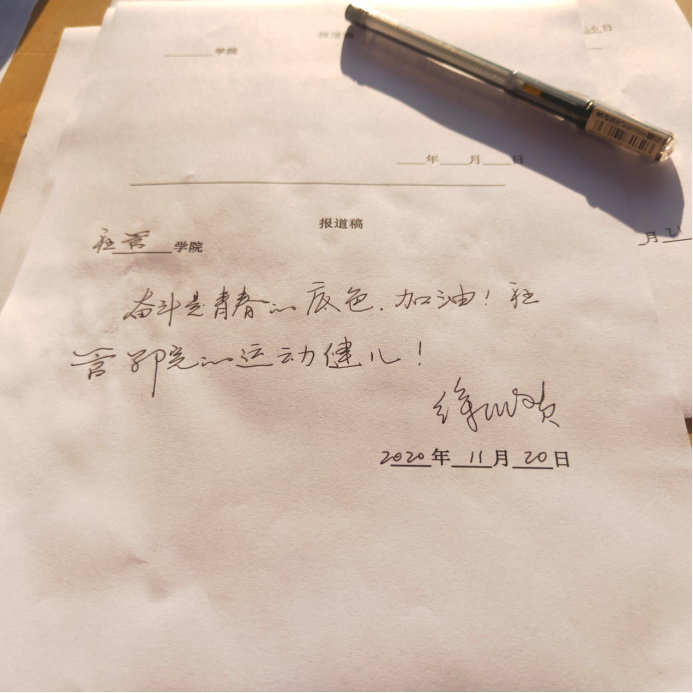 报道稿
学院
年 月 日
报道稿
经管 学院
奋斗是青春的底色,加油!经
管学院的运动健儿!
2020年 11月 20日
月 21
日